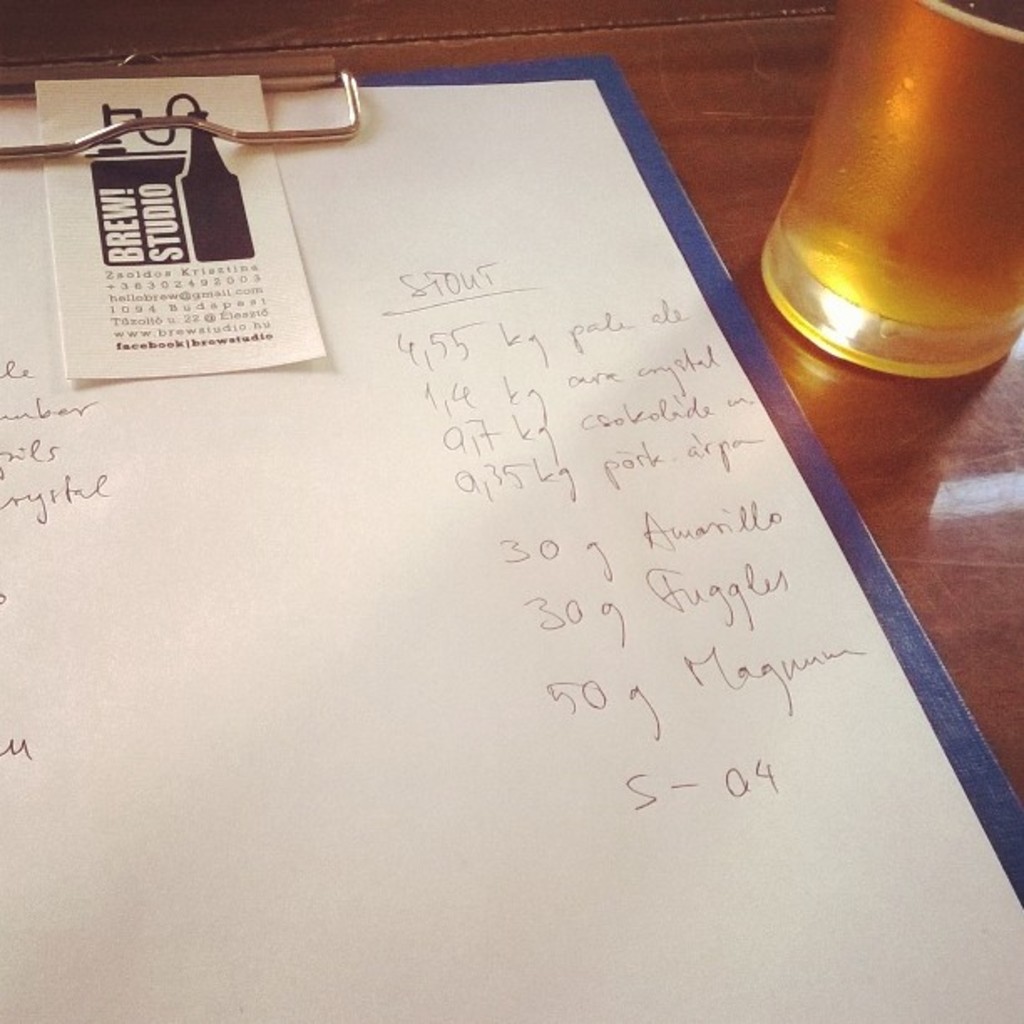 BREW!
STUDIO
Zsoldos Krisztina
+36302492003
hellobrew@gmail.com
1094 Budapest
Tűzoltó u. 22 @ Élesztő
www.brewstudio.hu
facebook|brewstudio
le
pils
crystal
STOUT
4,55 kg pale ale
1,4 kg crystal
0,7 kg csokoládé m.
0,35 kg pörk. árpa
30 g Amarillo
30 g Fuggles
50 g Magnum
S-04